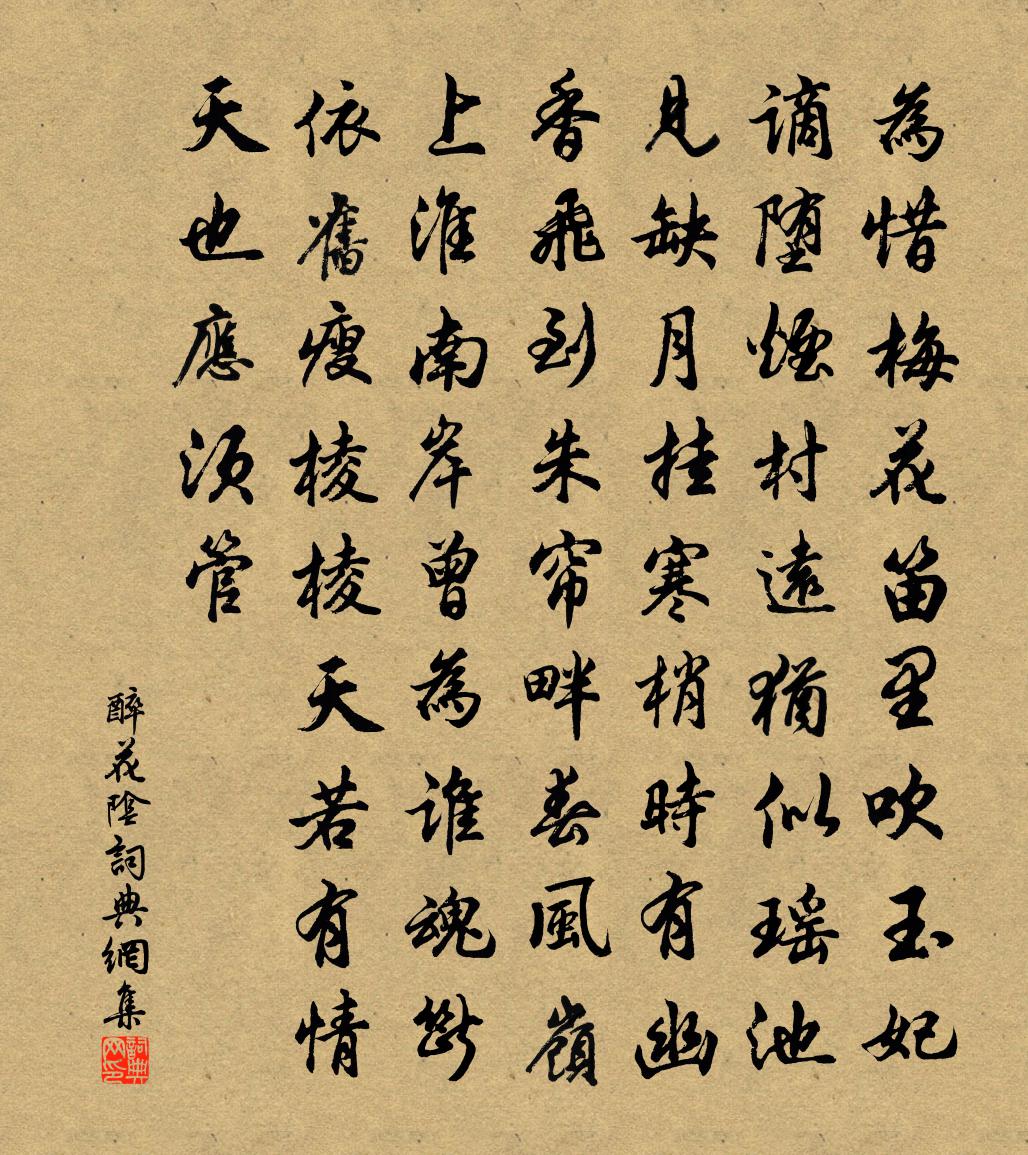 為惜梅花笛里吹玉妃
謫堕煙村遠猶似瑶池
見缺月挂寒梢時有幽
香飛到朱帘畔春風嶺
上淮南岸曾為誰魂斷
依舊瘦棱棱天若有情
天也應須管
醉花陰詞典網集
詞典网印